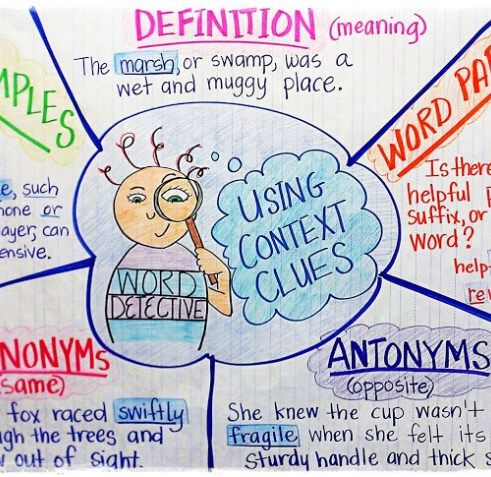 DEFINITION (meaning)
The marsh, or swamp, was a
wet and muggy place.
MPLES
such
or
can
WORD PA
Is there
helpful
suffix, or
word?
help
re
USING
CONTEXT
CLUES
WORD
DETECTIVE
NONYMS
(same)
fox raced swiftly
the trees and
out of sight.
ANTONYMS
(opposite)
She knew the cup wasn't
fragile when she felt its
sturdy handle and thick s